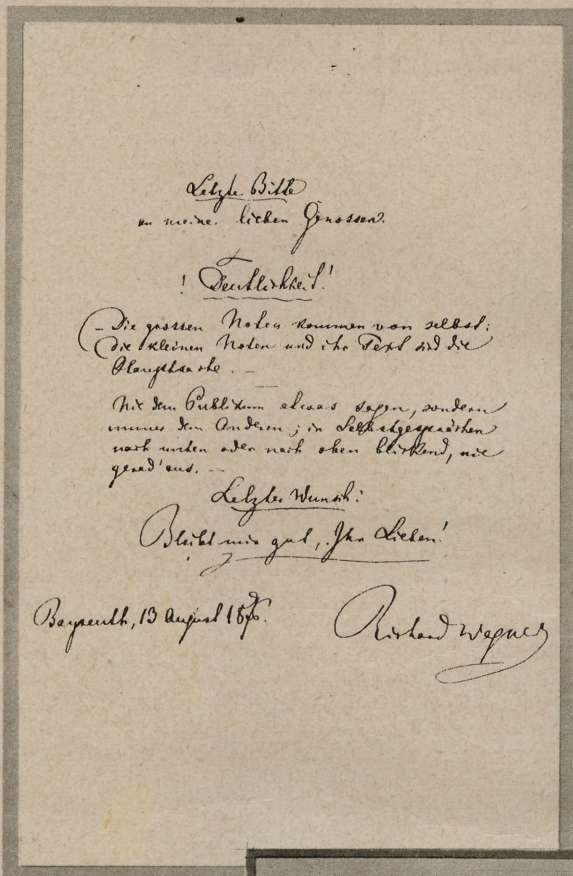 Letzte Bitte
an meine lieben Genossen.
! Deutlichkeit!
– Die grossen Noten kommen von selbst;
die kleinen Noten und ihr Text sind die
Hauptsache. –
Nie dem Publikum etwas sagen, sondern
immer dem Anderen; in Selbstgesprächen
nach unten oder nach oben blickend, nie
gerad'aus. –
Letzter Wunsch:
Bleibt mir gut, Ihr Lieben!
Bayreuth, 13 August 1876.
Richard Wagner